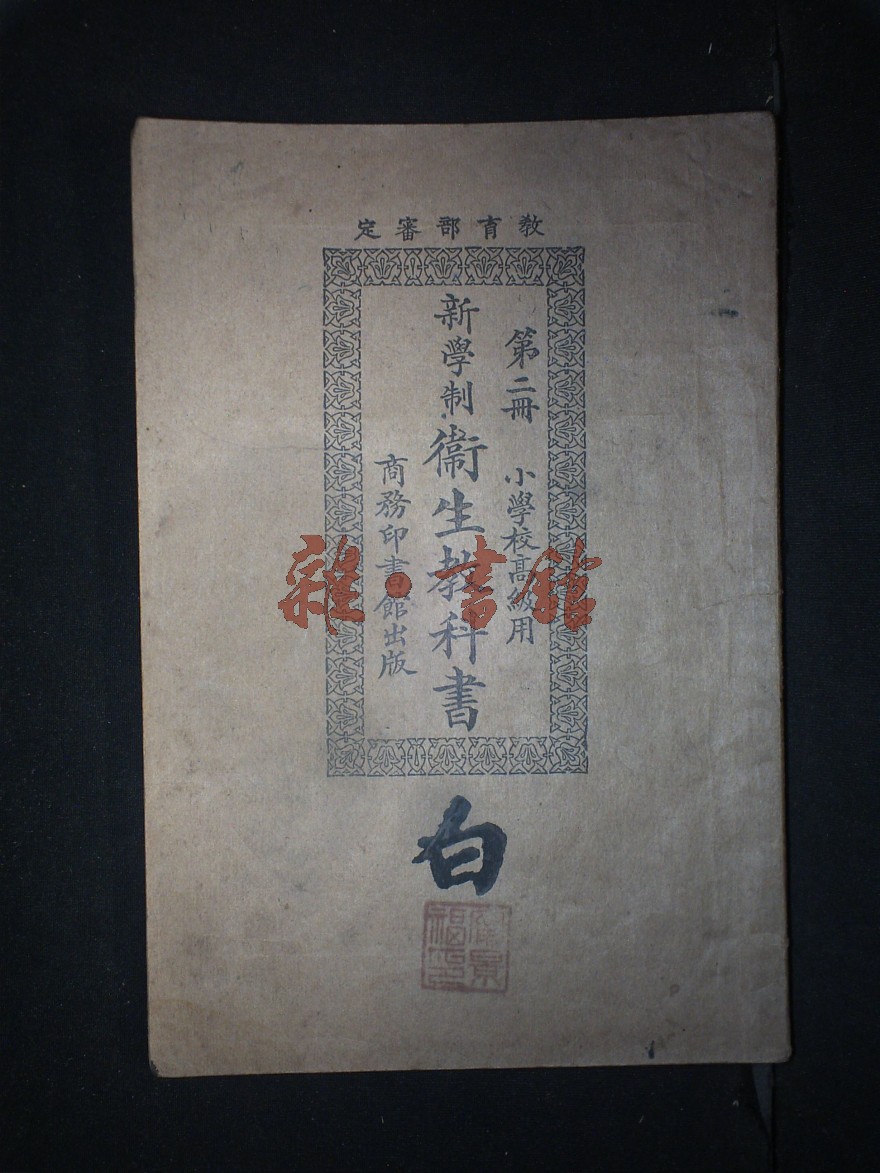 教育部審定
第二冊 小學校高級用
新學制衞生教科書
商務印書館出版
雜·書館